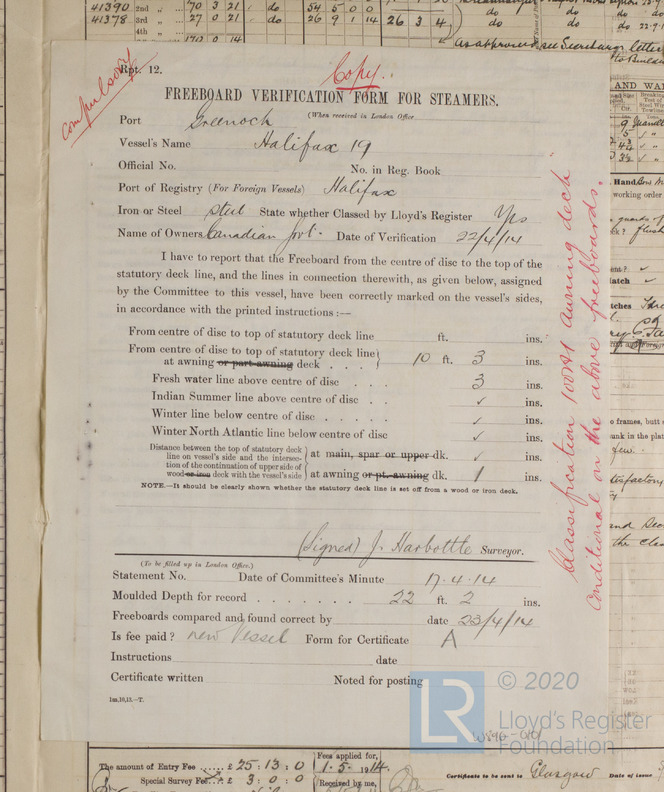 41390 2nd " 70 3 21 do 54 5 0 0
41378 3rd " 27 0 21 do 26 9 1 14 26 3 4 do do do 22.9.1
4th "
172 0 14
as approved, see Secretary's letter
compulsory
Rpt. 12.
Copy.
FREEBOARD VERIFICATION FORM FOR STEAMERS.
(When received in London Office
Port Greenock
Vessel's Name Halifax 19
Official No. No. in Reg. Book
Port of Registry (For Foreign Vessels) Halifax
Iron or Steel Steel State whether Classed by Lloyd's Register Yes
Name of Owners Canadian Govt. Date of Verification 22/4/14
I have to report that the Freeboard from the centre of disc to the top of the
statutory deck line, and the lines in connection therewith, as given below, assigned
by the Committee to this vessel, have been correctly marked on the vessel's sides,
in accordance with the printed instructions :—
From centre of disc to top of statutory deck line ft. ins.
From centre of disc to top of statutory deck line
at awning or part awning deck . . . 10 ft. 3 ins.
Fresh water line above centre of disc . . . 3 ins.
Indian Summer line above centre of disc . . ✓ ins.
Winter line below centre of disc . . . . . ✓ ins.
Winter North Atlantic line below centre of disc ✓ ins.
Distance between the top of statutory deck
line on vessel's side and the intersec-
tion of the continuation of upper side of
wood or iron deck with the vessel's side
at main, spar or upper dk. ✓ ins.
at awning or pt. awning dk. 1 ins.
NOTE.—It should be clearly shown whether the statutory deck line is set off from a wood or iron deck.
(Signed) J. Harbottle Surveyor.
(To be filled up in London Office.)
Statement No. Date of Committee's Minute 17.4.14
Moulded Depth for record . . . . . . . 22 ft. 2 ins.
Freeboards compared and found correct by date 23/4/14
Is fee paid ? new Vessel Form for Certificate A
Instructions date
Certificate written Noted for posting
1m,10,13.—T.
Classification 100A1 Awning deck
conditional on the above freeboards.
© 2020
LR
Lloyd's Register
Foundation
The amount of Entry Fee ..... £ 25 : 13 : 0
Special Survey Fee .. £ 3 : 0 : 0
Fees applied for,
1.5.1914.
Received by me,
Certificate to be sent to Glasgow Date of issue